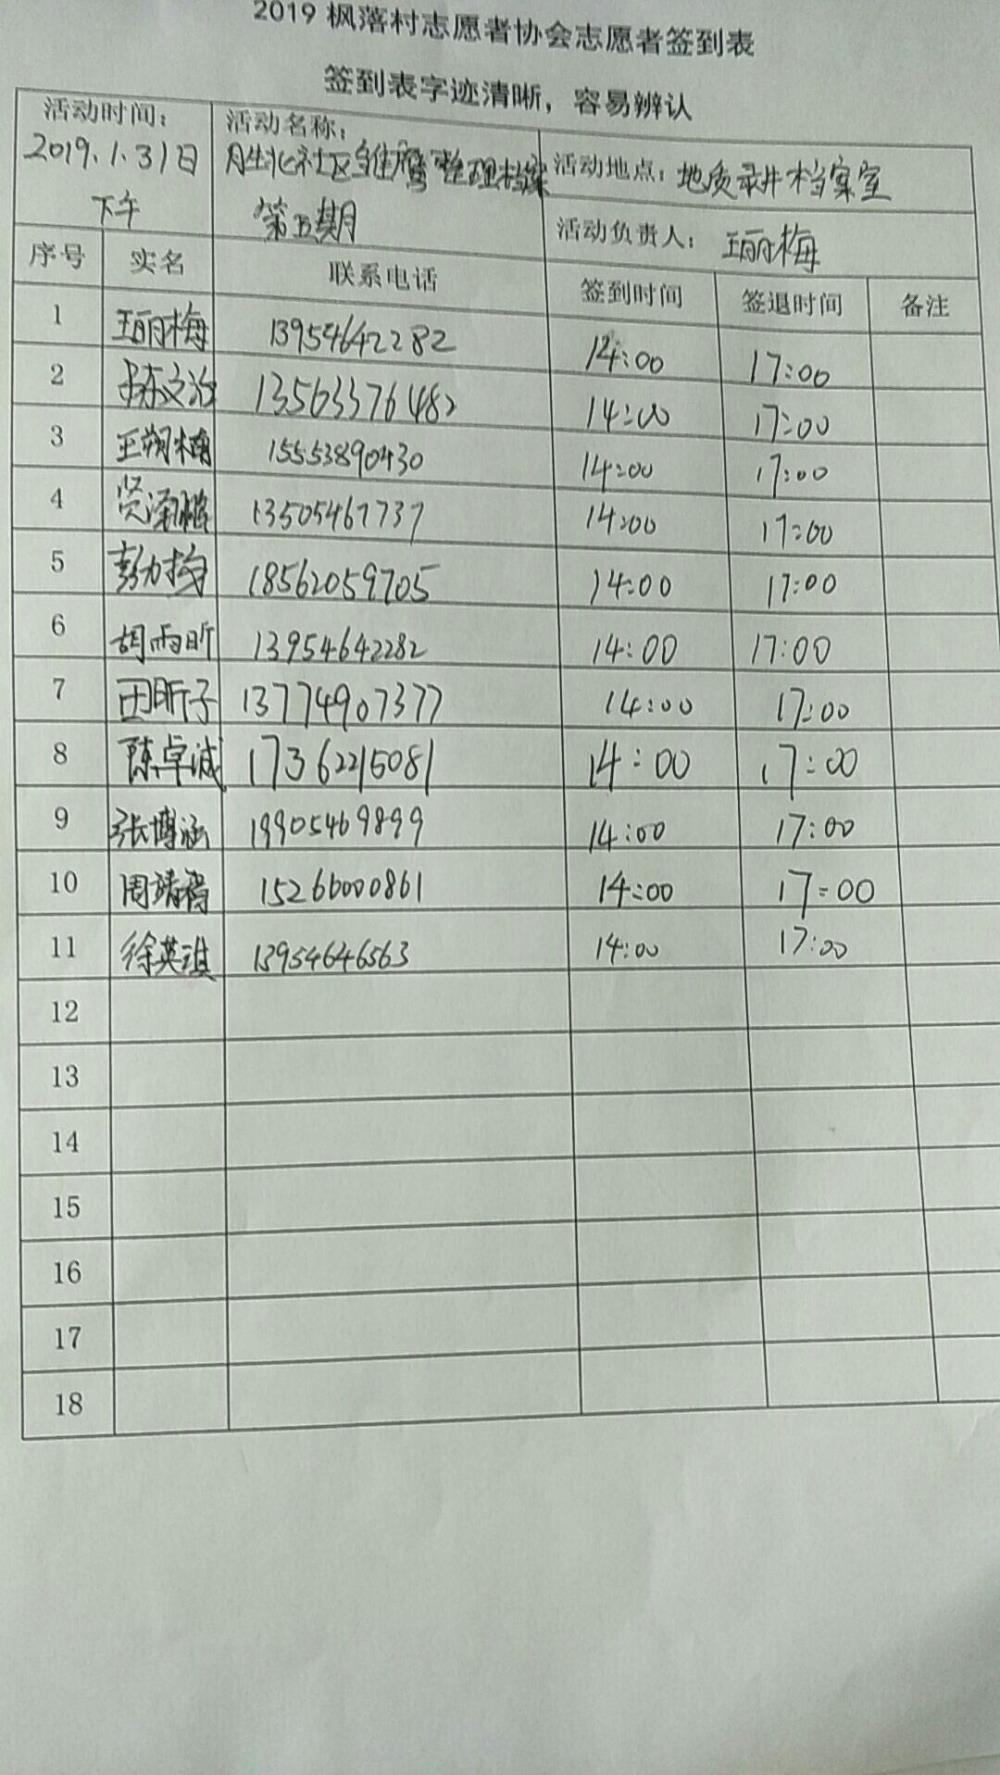 2019 枫落村志愿者协会志愿者签到表
签到表字迹清晰，容易辨认
活动时间： 2019.1.31日 下午
活动名称： 胜北社区雏鹰整理档案 第五期
活动地点：地质录井档案室
活动负责人：王丽梅
序号 实名 联系电话 签到时间 签退时间 备注
1 王丽梅 13954642282 14:00 17:00
2 文治 13563376482 14:00 17:00
3 王朔楠 15553890430 14:00 17:00
4 13505467737 14:00 17:00
5 彭力均 18562059705 14:00 17:00
6 胡雨昕 13954642282 14:00 17:00
7 田昕子 13774907377 14:00 17:00
8 陈卓诚 17362215081 14:00 17:00
9 张博涵 19905469899 14:00 17:00
10 周靖 15266000861 14:00 17:00
11 徐英淇 13954646563 14:00 17:00
12
13
14
15
16
17
18